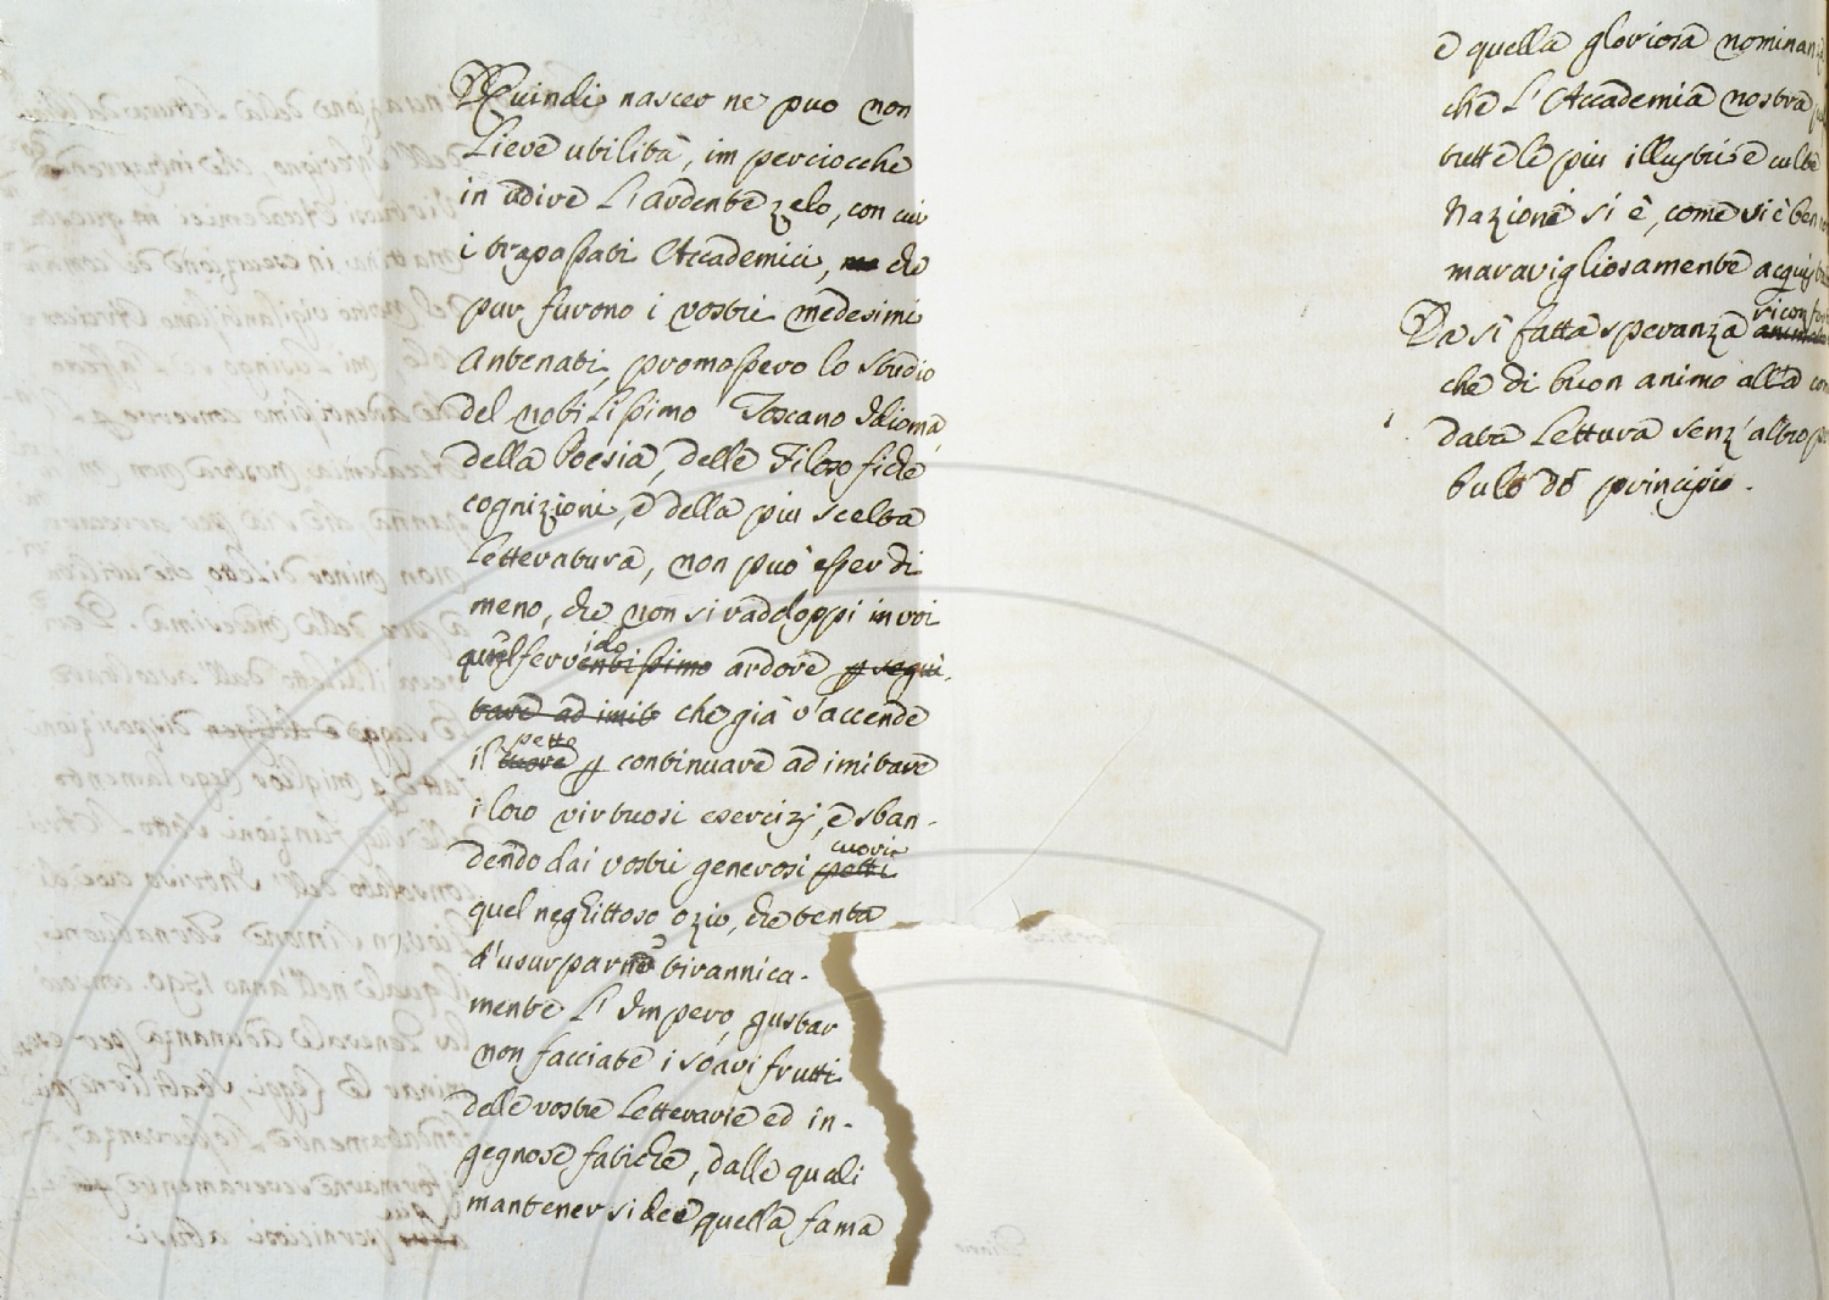 Quindi nascer ne puo non
Lieve utilità, im perciocche
in udire L'ardente zelo, con cui
i trapassati Accademici, che
pur furono i vostri medesimi
Antenati, promossero lo studio
del nobilissimo Toscano Idioma,
della Poesia, delle Filosofiche
cognizioni, e della piu scelta
Letteratura, non può esser di
meno, che non si raddoppi in voi
quel fervido ardore p segui-
tare ad imit che già v'accende
il petto p continuare ad imitare
i loro virtuosi esercizj, e sban-
dendo dai vostri generosi cuori
quel neghittoso ozio, che tenta
d'usurparne tirannica-
mente L'Impero, gustar
non facciate i soavi frutti
delle vostre Letterarie ed in-
gegnose fatiche, dalle quali
mantener si dee quella fama
e quella gloriosa nominan
che L'Accademia nostra
tutte le piu illustri e culte
Nazioni si è, come vi è ben
maravigliosamente acquis
Da sì fatta speranza riconfor
che di buon animo alla
data Lettura senz'altro
bulo dò principio.